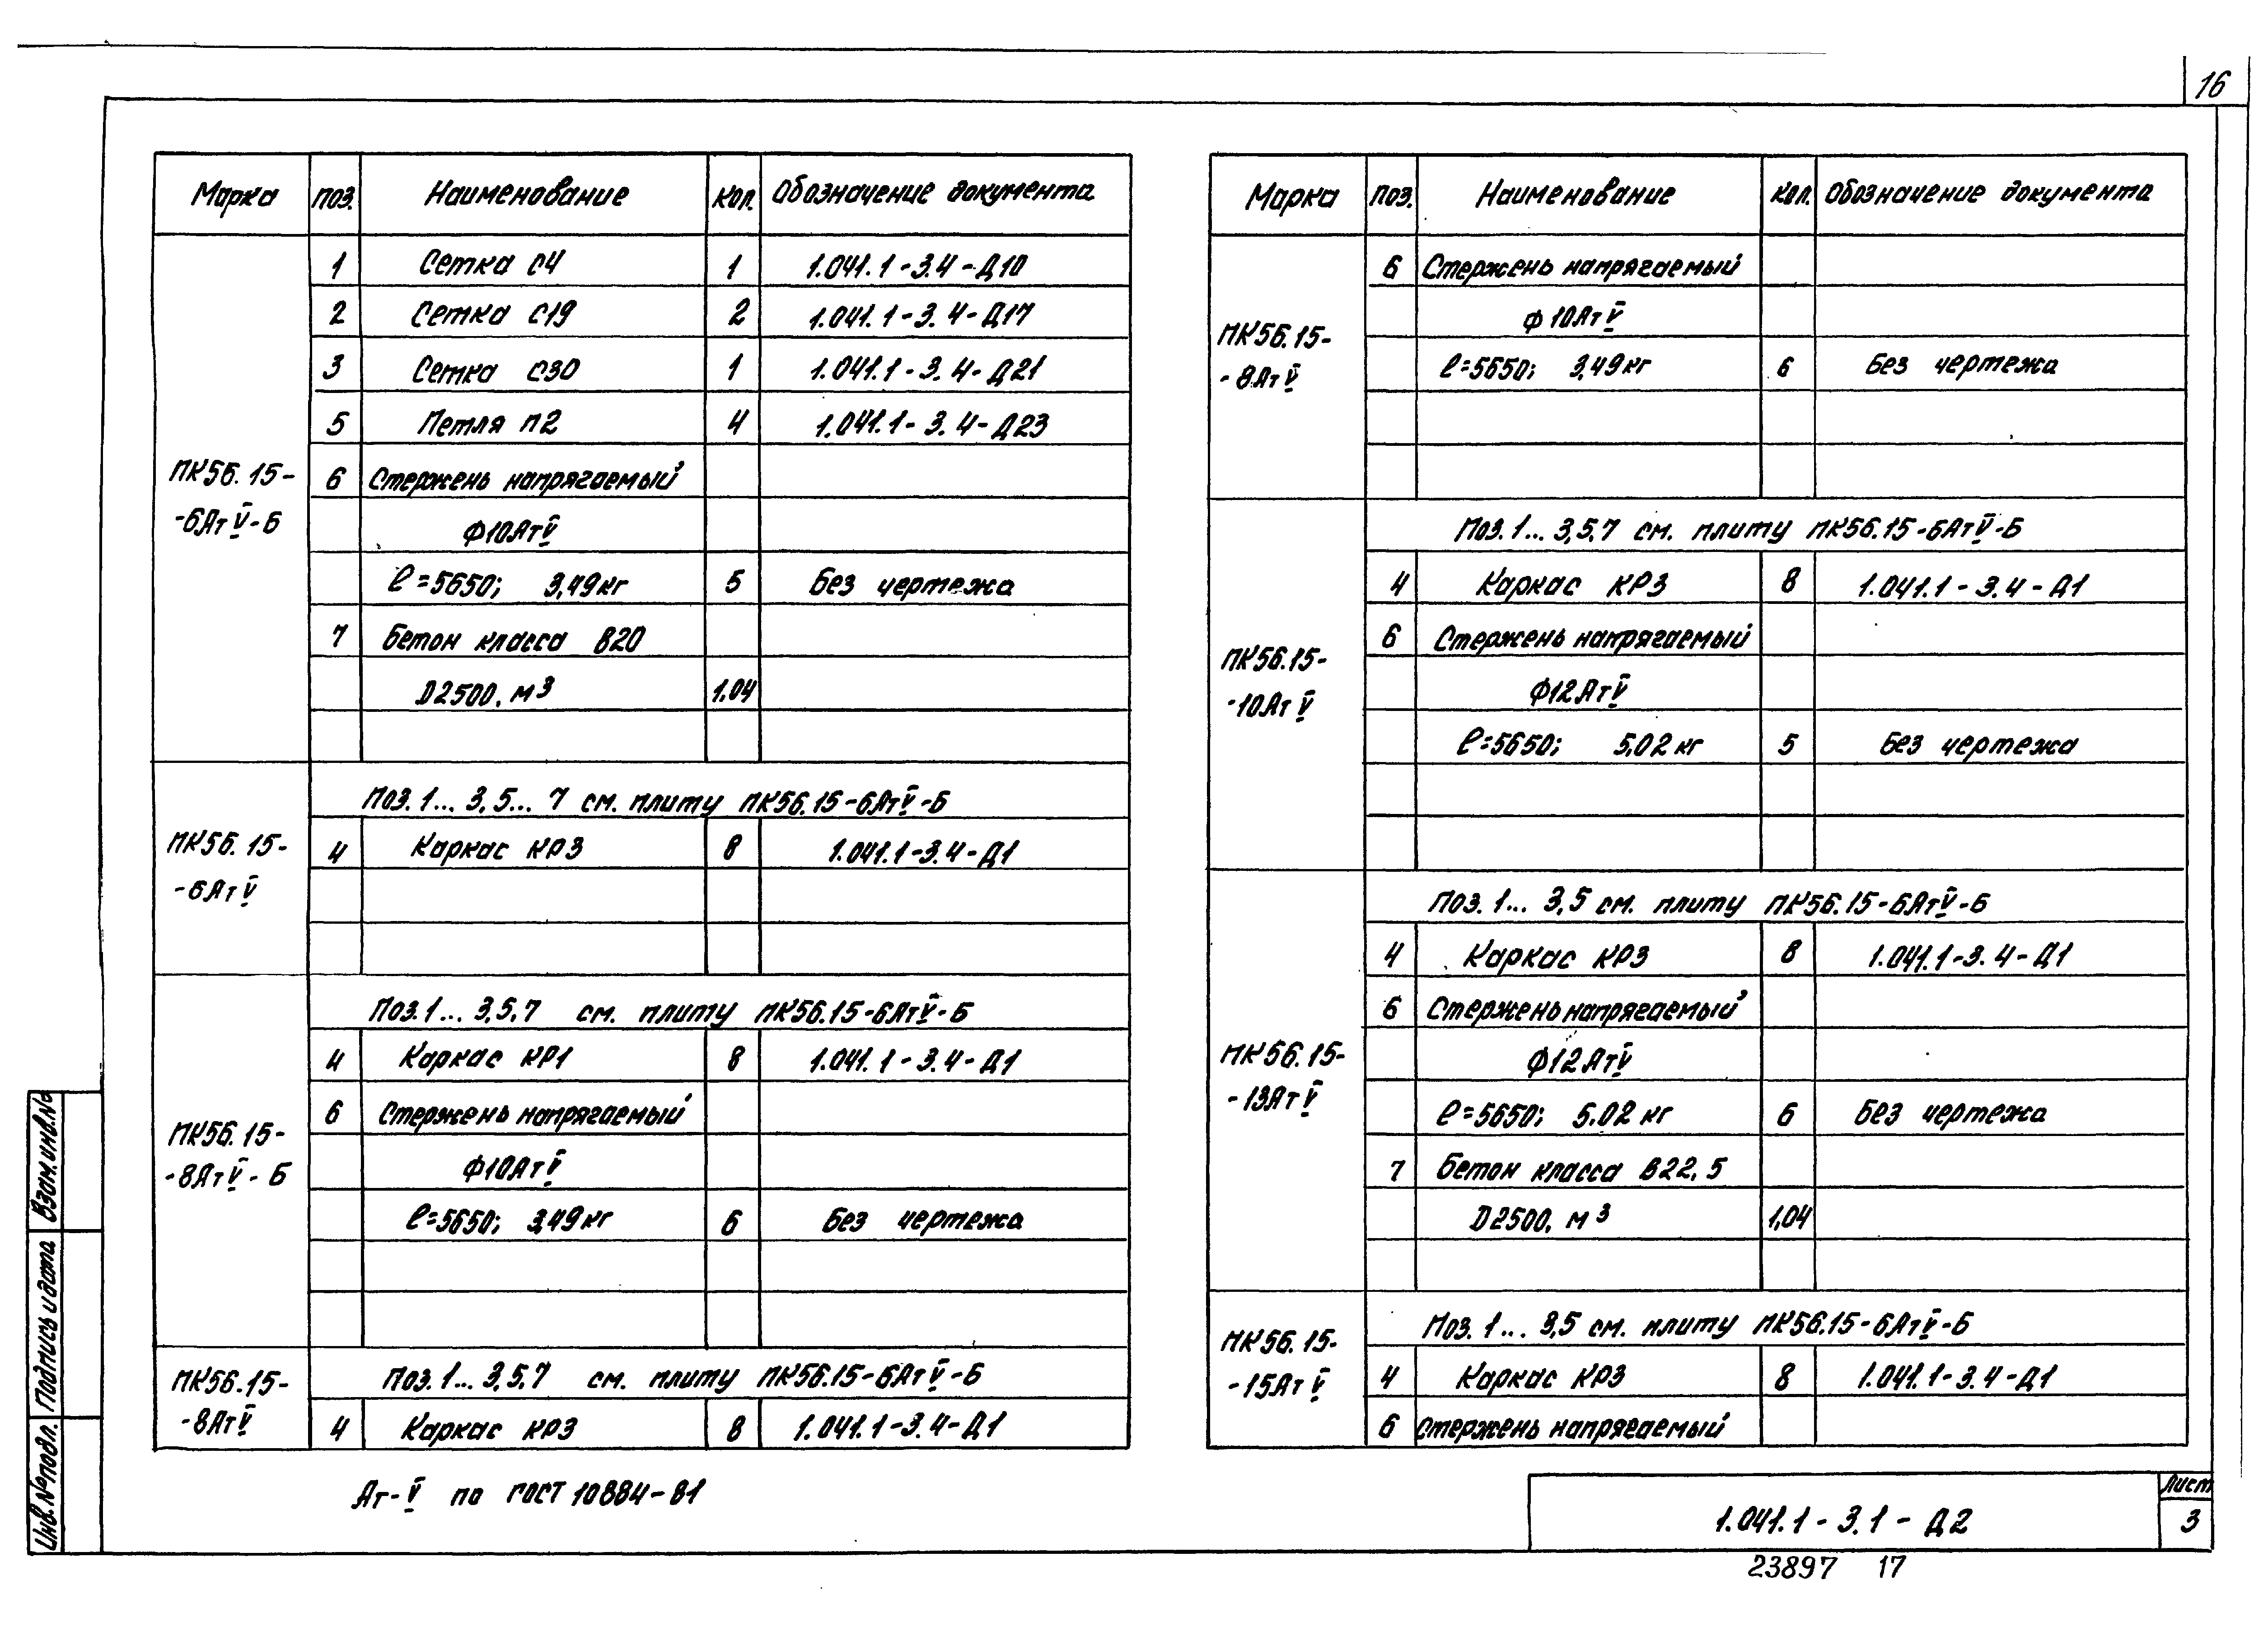 16
Марка поз. Наименование кол. Обозначение документа
ПК56.15-
-6АтV-Б
1 Сетка С4 1 1.041.1-3.4-Д10
2 Сетка С19 2 1.041.1-3.4-Д17
3 Сетка С30 1 1.041.1-3.4-Д21
5 Петля П2 4 1.041.1-3.4-Д23
6 Стержень напрягаемый
Ф10АтV
ℓ=5650; 3,49кг 5 Без чертежа
7 Бетон класса В20
D2500, м³ 1.04
ПК56.15-
-6АтV
Поз. 1... 3, 5... 7 см. плиту ПК56.15-6АтV-Б
4 Каркас КР3 8 1.041.1-3.4-Д1
ПК56.15-
-8АтV-Б
Поз. 1... 3,5,7 см. плиту ПК56.15-6АтV-Б
4 Каркас КР1 8 1.041.1-3.4-Д1
6 Стержень напрягаемый
Ф10АтV
ℓ=5650; 3,49кг 6 Без чертежа
ПК56.15-
-8АтV
Поз. 1... 3,5,7 см. плиту ПК56.15-6АтV-Б
4 Каркас КР3 8 1.041.1-3.4-Д1
Ат-V по ГОСТ 10884-81
Марка поз. Наименование кол. Обозначение документа
ПК56.15-
-8АтV
6 Стержень напрягаемый
Ф10АтV
ℓ=5650; 3,49кг 6 Без чертежа
ПК56.15-
-10АтV
Поз. 1... 3,5,7 см. плиту ПК56.15-6АтV-Б
4 Каркас КР3 8 1.041.1-3.4-Д1
6 Стержень напрягаемый
Ф12АтV
ℓ=5650; 5,02кг 5 Без чертежа
ПК56.15-
-13АтV
Поз. 1... 3,5 см. плиту ПК56.15-6АтV-Б
4 Каркас КР3 8 1.041.1-3.4-Д1
6 Стержень напрягаемый
Ф12АтV
ℓ=5650; 5.02кг 6 Без чертежа
7 Бетон класса В22,5
D2500, м³ 1,04
ПК56.15-
-15АтV
Поз. 1... 3,5 см. плиту ПК56.15-6АтV-Б
4 Каркас КР3 8 1.041.1-3.4-Д1
6 Стержень напрягаемый
Взам.инв.№
Подпись и дата
Инв.№подл.
1.041.1-3.1-Д2
Лист
3
23897 17